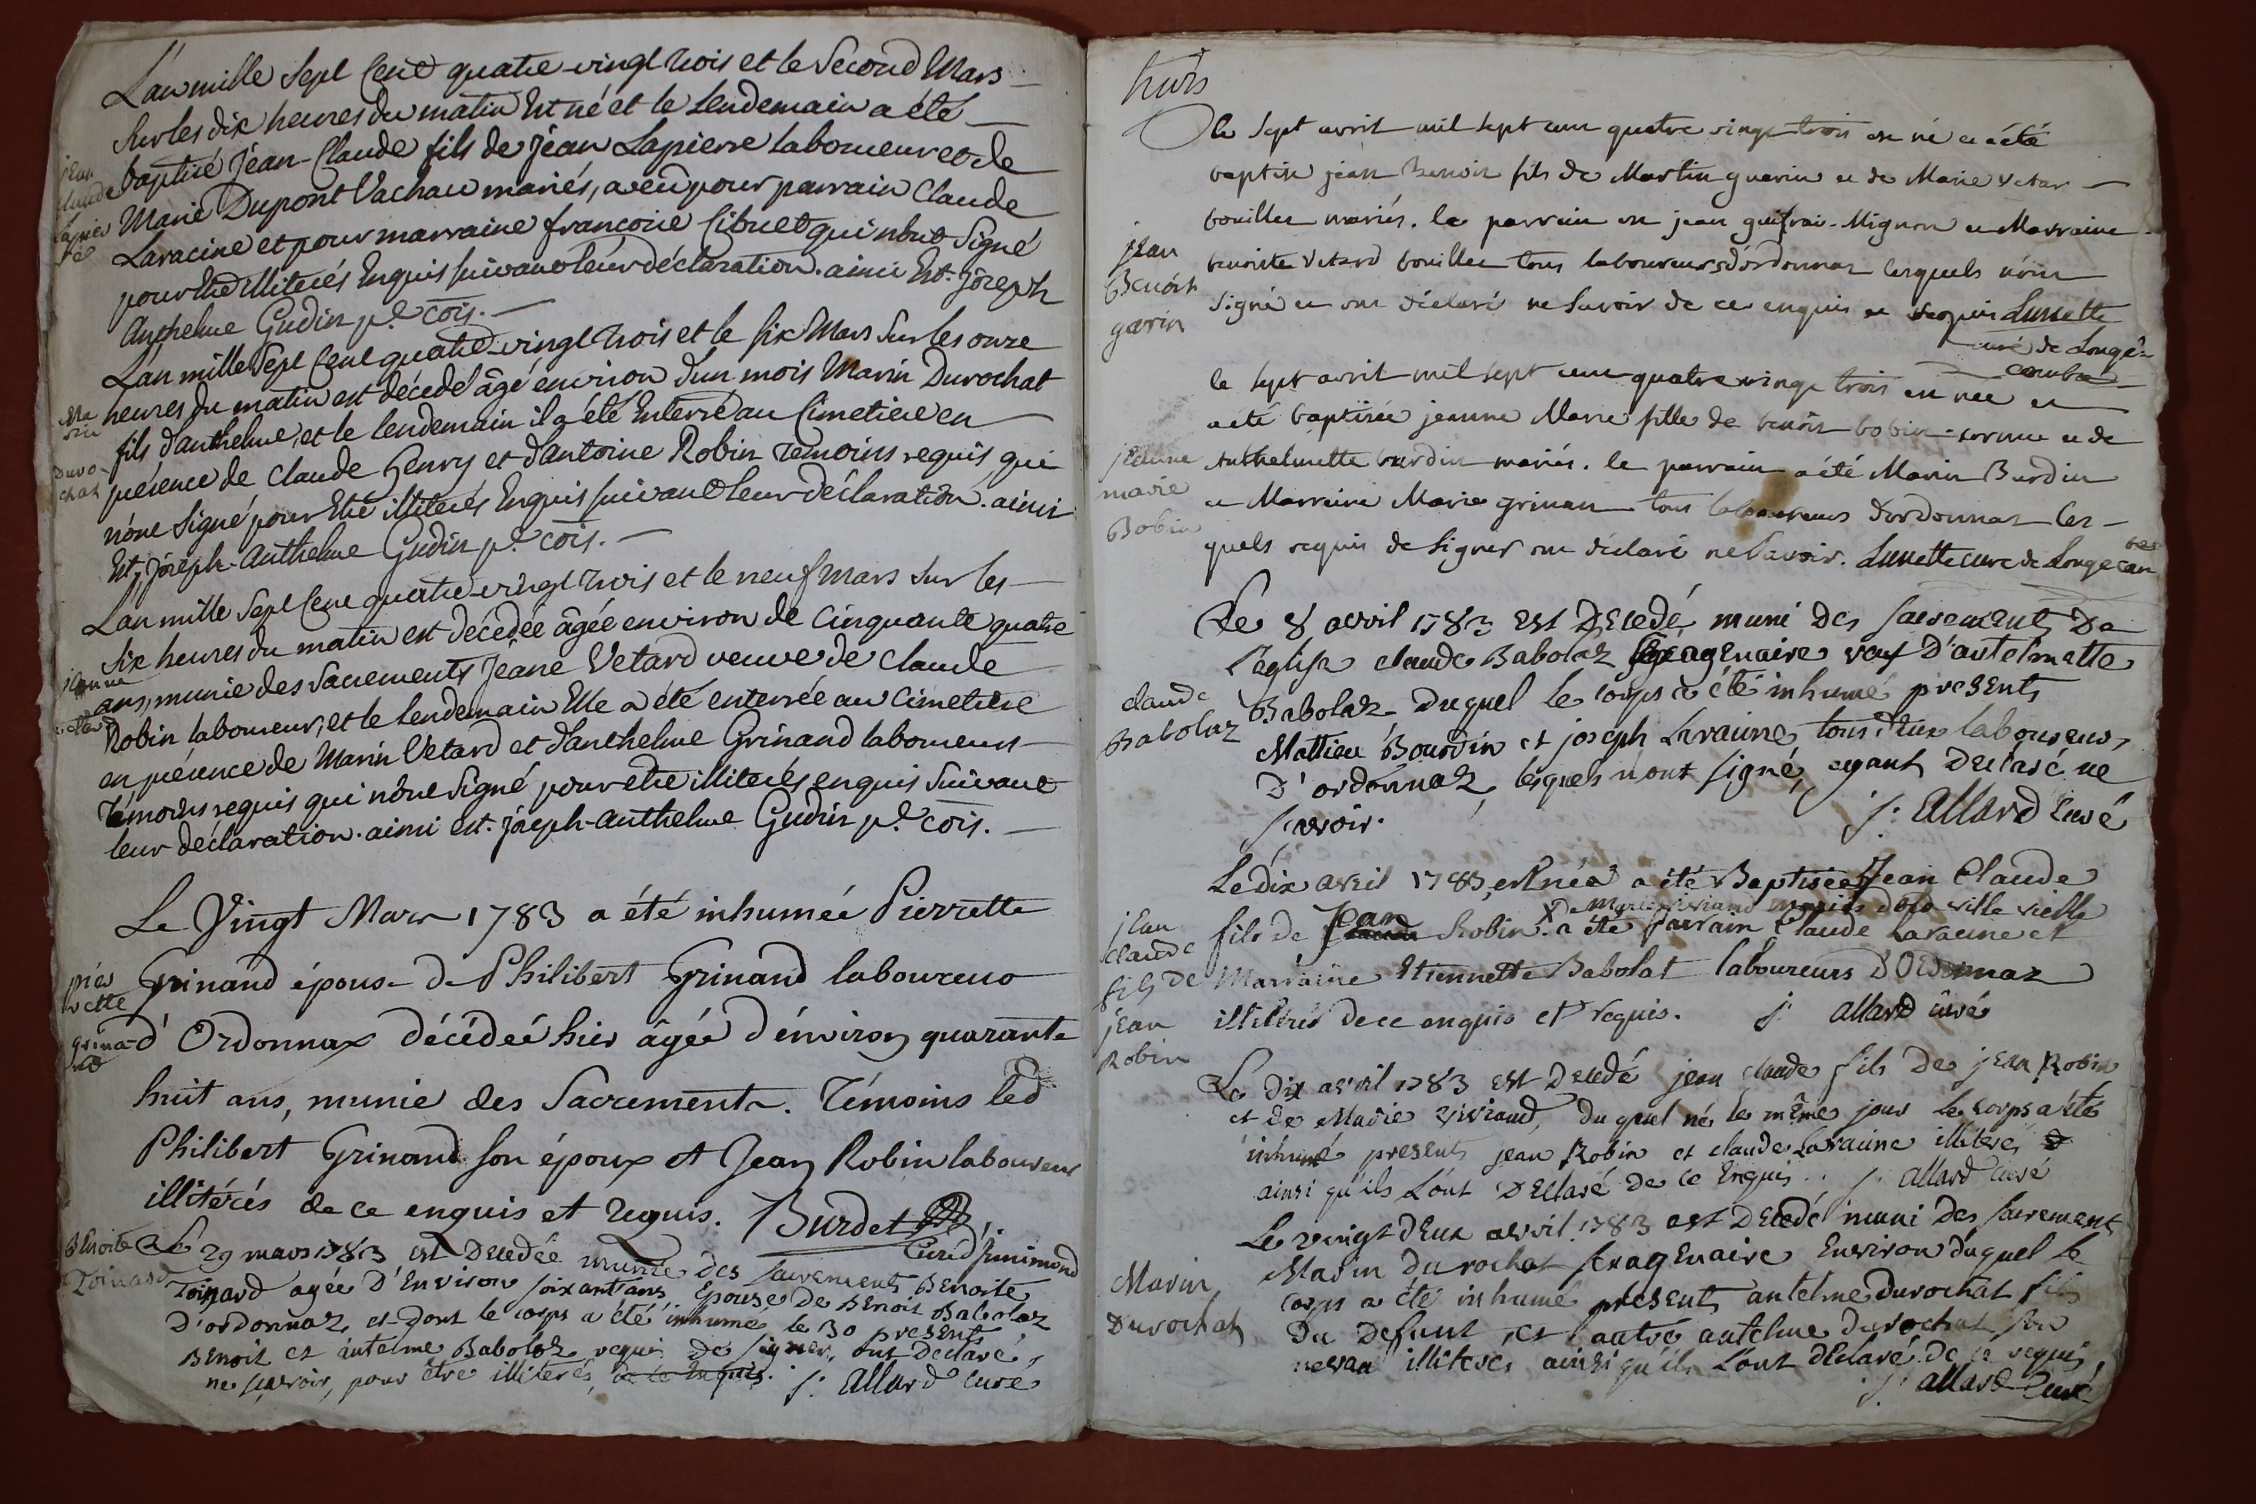 L'an mille Sept Cent quatre-vingt trois et le Second Mars
Sur les dix heures du matin Est né et le lendemain a été
baptisé Jéan-Claude fils de Jéan Lapierre laboureur et de
Marie Dupont Vachau mariés, a eû pour parrain Claude
Laracine et pour marraine francoise Cibuet qui n'ont Signé
pour Etre illiterés Enquis suivant leur déclaration. ainsi Est. Jóseph
Anthelme Gudin p.e cõis.
jean
claude
lapier
re
L'an mille Sept Cent quatre-vingt trois et le six Mars Sur les onze
heures du matin est décedé âgé environ d'un mois Marin Durochat
fils d'anthelme, et le lendemain il a été Enterré au Cimetiere en
présence de Claude Henry et d'antoine Robin temoins requis, qui
n'ont Signé pour Etre illiterés Enquis suivant leur déclaration. ainsi
Est, jóseph-Anthelme Gudin p.e cõis.
Ma
rin
Duro-
chat
L'an mille Sept Cent quatre-vingt trois et le neuf Mars sur les
six heures du matin est décedée âgée environ de cinquante quatre
ans, munie des Sacrements Jéane Vetard veuve de Claude
Robin laboureur, et le lendemain Elle a été enterrée au Cimetiere
en présence de Marin Vetard et d'anthelme Grinand laboureurs
Témoins requis qui n'ont Signé pour etre illiterés enquis Suivant
leur déclaration. ainsi est. jóseph-anthelme Gudin p.e cõis.
jeanne
Le Vingt Mars 1783 a été inhumée Pierrette
Grinand épouse de Philibert Grinand laboureur
d'Ordonnax décédée hier âgée d'environ quarante
huit ans, munie des Sacrements. Témoins led
Philibert Grinand son époux et Jean Robin laboureur
illitérés de ce enquis et requis. Burdet
Curé d'Inimond
pier
rette
grina
nd
Le 29 mars 1783 est Decedée munie des sacrements Benoite
Toinard agée D'Environ soixant'ans Epouse De Benoit Babolaz
D'ordonnaz, et dont le corps a été inhumé le 30 presents
Benoit et antelme Babolaz requis de signer, ont Declaré
ne sçavoir, pour être illiterés, de ce Enquis. j. allard curé
Benoite
Toinard
trois
le sept avril mil sept cent quatre vingt trois est né et a été
baptisé jean Benoit fils de Martin guerin et de Marie Vetar
bouillet mariés. le parrain est jean guifrai-Mignon et Marraine
benoite Vetard bouillet tous laboureurs d'ordonnaz lesquels n'ont
signé et ont déclaré ne savoir de ce enquis et requis Lunette
curé de Longe-
combe
jean
Benoit
garin
le sept avril mil sept cent quatre vingt trois est née et
a été baptisée jeanne Marie fille de benoit bobin-cornu et de
Anthelmette burdin mariés. le parrain a été Marin Burdin
et Marraine Marie grinan tous laboureurs d'ordonnaz les-
quels requis de signer ont déclaré ne savoir. Lunette curé de Longecom
bes
jeanne
marie
Bobin
Le 8 avril 1783 est Decedé muni des sacrements De
l'eglise claude Babolaz sexagenaire veuf D'antelmette
Babolaz Duquel le corps a été inhumé presents
Mattieu Bourdin et joseph Laracine, tous deux laboureurs
D'ordonnaz, lesquels n'ont signé, ayant Declaré ne
sçavoir. j. allard curé
claude
Babolaz
Le dix avril 1783, est né a été Baptisée Jean Claude
fils de Claude Jean Robin X de Marie viviand mariés de la ville vielle
a été parrain Claude Laracine et
Marraine Etiennette Babolat laboureurs D'Ordonnaz
illitérés de ce enquis et requis. j. allard curé
jean
claude
fils de
jean
Robin
Le Dix avril 1783 est Decedé jean claude fils de jean Robin
et de Marie viviand, duquel né le même jour le corps a été
inhumé presents jean Robin et claude Laracine illiterés
ainsi qu'ils l'ont Declaré de ce Enquis. j. allard curé
Le vingt Deux avril 1783 est Decedé muni des sacrement
Marin durochat sexagenaire Environ duquel le
corps a été inhumé presents antelme durochat fils
du Defunt, et l'autre antelme durochat son
neveu illiterés ainsi qu'ils l'ont Declaré de ce requis
j. allard curé
Marin
Durochat